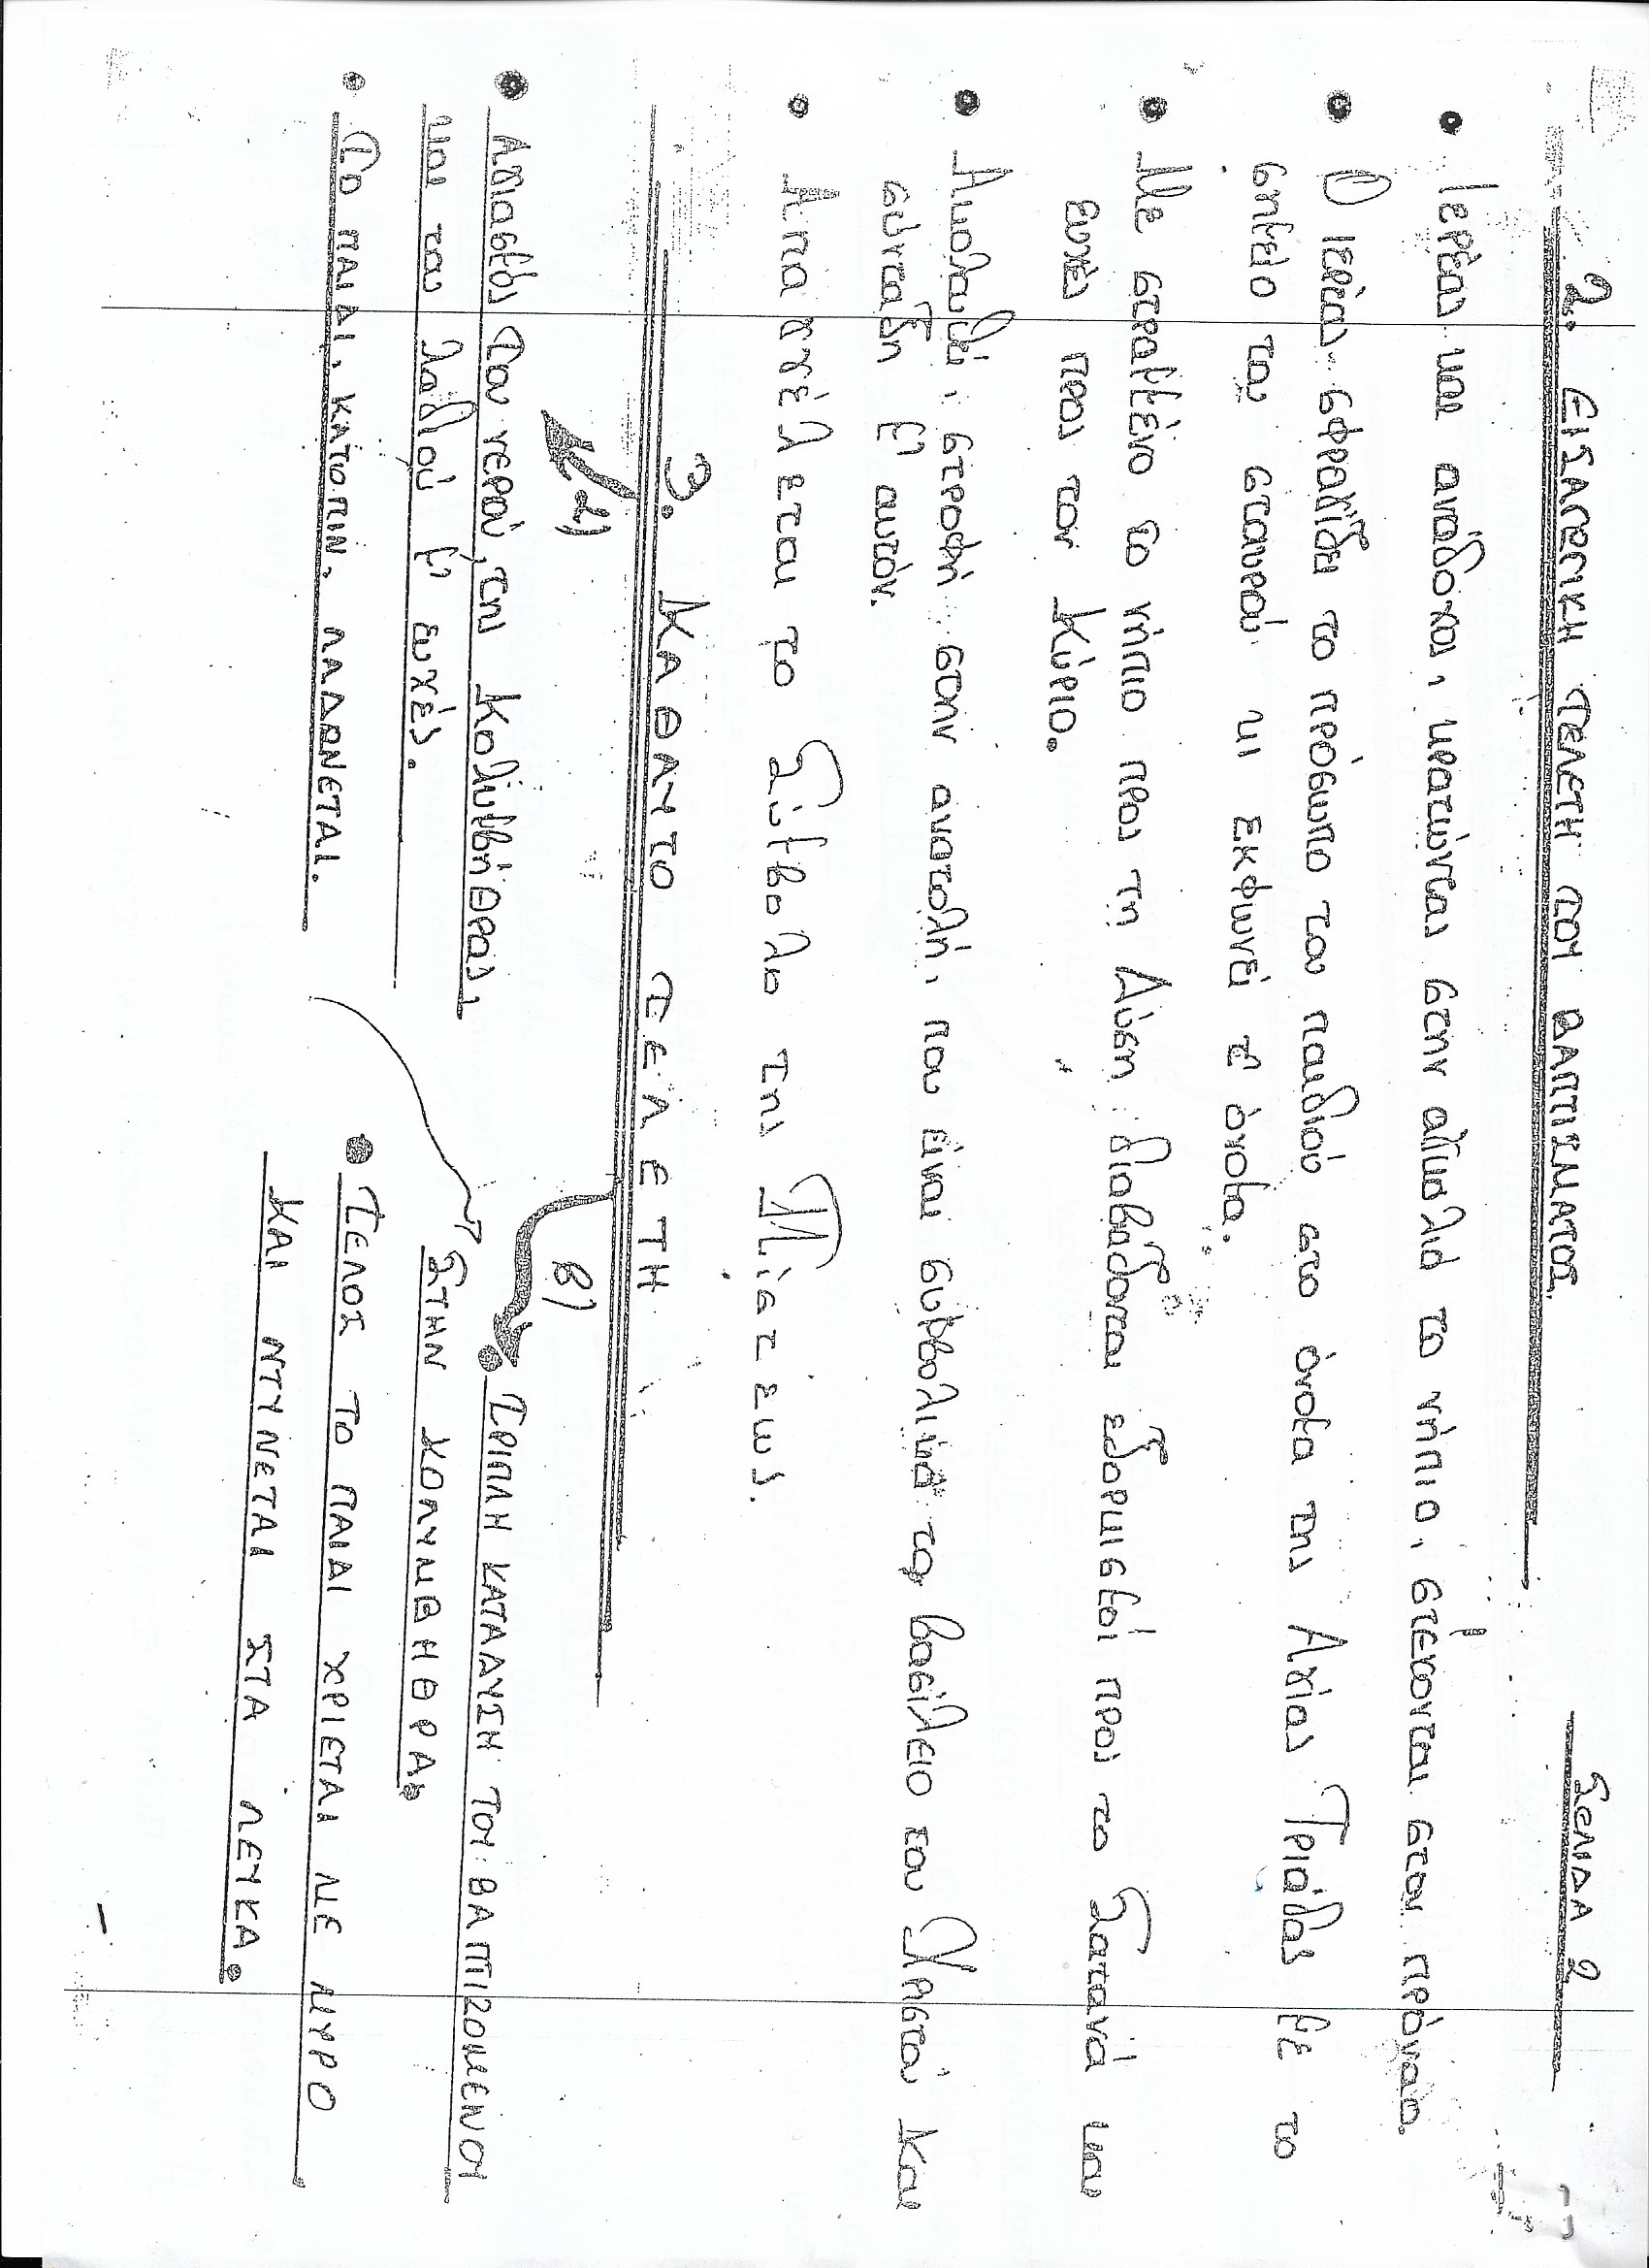 Σελιδα 2
2. Εισαγωγικη τελετη του βαπτισματος.
• Ιερέας και ανάδοχοι, κρατώντας στην αγκαλιά το νήπιο, στέκονται στον πρόναο.
• Ο ιερέας σφραγίζει το πρόσωπο του παιδιού στο όνομα της Αγίας Τριάδας με το
σημείο του σταυρού κι εκφωνεί τ' όνομα.
• Με στραμμένο το νήπιο προς τη Δύση: διαβάζονται εξορκισμοί προς το Σατανά και
ευχές προς τον Κύριο.
• Ακολουθεί, στροφή στην ανατολή, που είναι συμβολικά το βασίλειο του Χριστού και
σύνταξη μ' αυτόν.
• Απαγγέλεται το Σύμβολο της Πίστεως.
3. Καθαυτο τελετη
α)
• Αγιασμός του νερού, της Κολυμβήθρας,
και του λαδιού μ' ευχές.
• Το παιδι, κατοπιν, λαδωνεται.
β)
• Τριπλη καταδυση του βαπτιζομενου
στην κολυμβηθρα.
• Τελος το παιδι χριεται με μυρο
και ντυνεται στα λευκα.